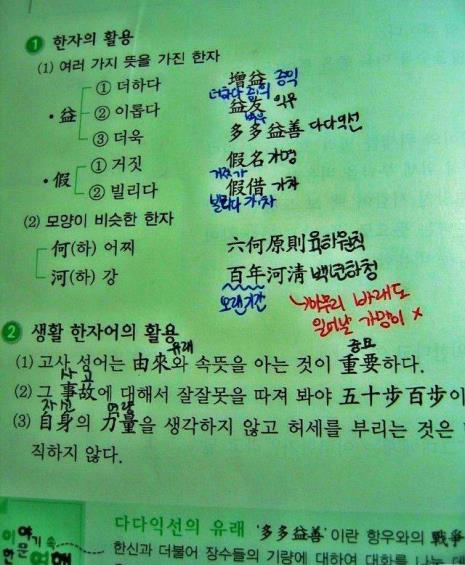 1 한자의 활용
(1) 여러 가지 뜻을 가진 한자
·益 ① 더하다 增益 증익
더하다
② 이롭다 益友 익우
③ 더욱 多多益善 다다익선
·假 ① 거짓 假名 가명
② 빌리다 假借 가차
빌리다
(2) 모양이 비슷한 한자
何(하) 어찌 六何原則 육하원칙
河(하) 강 百年河清 백년하청
오랜기간 아무리 바래도
일어날 가망이 x
2 생활 한자어의 활용
유래 중요
(1) 고사 성어는 由來와 속뜻을 아는 것이 重要하다.
사고
(2) 그 事故에 대해서 잘잘못을 따져 봐야 五十步百步이
자신 역량
(3) 自身의 力量을 생각하지 않고 허세를 부리는 것은
직하지 않다.
이야기 속
한문 여행
다다익선의 유래 '多多益善'이란 항우와의 戰爭
한신과 더불어 장수들의 기량에 대하여 대화를 나눈 데